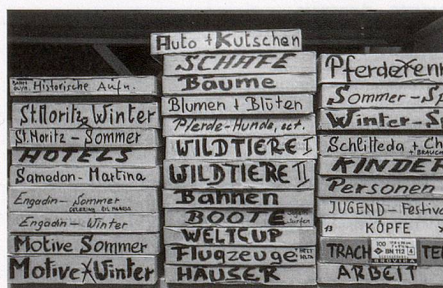 Historische Aufn.
St. Moritz Winter
St. Moritz - Sommer
HOTELS
Samedan - Martina
Engadin - Sommer
Engadin - Winter
Motive Sommer
Motive Winter
Auto + Kutschen
SCHAFE
Bäume
Blumen + Blüten
Pferde-Hunde, ect.
WILDTIERE I
WILDTIERE II
Bahnen
BOOTE
WELTCUP
Flugzeuge
HÄUSER
Pferderenn
Sommer - S
Winter - S
Schlitteda + Ch
KINDER
Personen
JUGEND - Festiva
KÖPFE
TRACH TE
ARBEIT